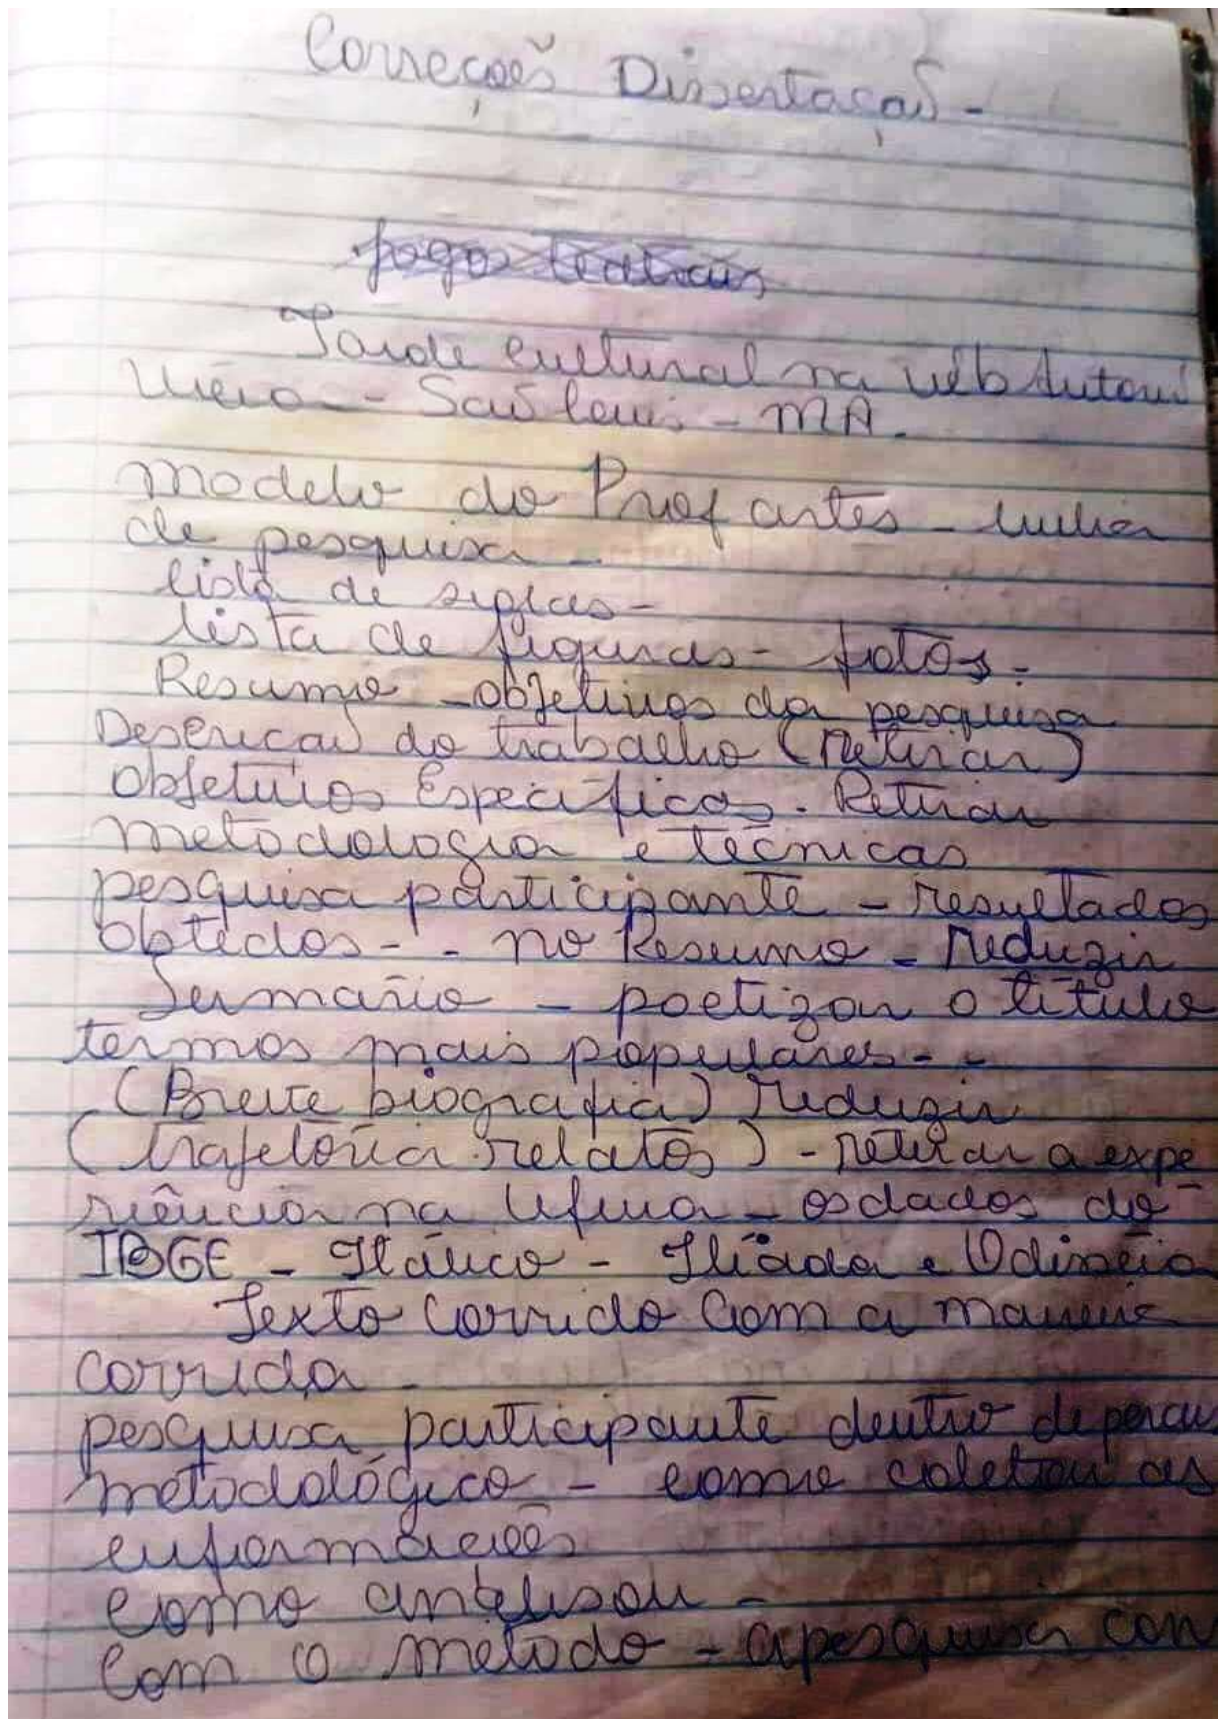 Correções Dissertação -
jogos teatrais
Tarde cultural na UEB Antoni
Vieira - São Luis - MA.
modelo do Prof artes - linha
de pesquisa -
lista de siglas -
lista de figuras - fotos -
Resumo - objetivos da pesquisa
Descriçaõ do trabalho (retirar)
objetivos Específicos. Retirar
metodologia e técnicas
pesquisa participante - resultados
obtidos - - no Resumo - reduzir
Sumário - poetizar o título
termos mais populares - -
(Breve biografia) reduzir
(trajetória relatos) - retirar a expe
riência na Ufma - os dados do
IBGE - Itálico - Ilíada e Odisséia
Texto corrido com a
corrida -
pesquisa participante dentro de percur
metodológico - como coletou as
informações
Como analisou -
Com o método - a pesquisa con